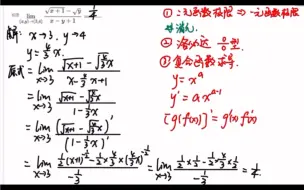 lim √x+1 − √y / x − y + 1 = 1/4
解: x→3, y→4
y = 4/3 x
原式 = lim x→3 √x+1 − √4/3 x / x − 4/3 x + 1
= lim x→3 √x+1 − √4/3 x / 1 − 1/3 x
= lim x→3 (√x+1 − √4/3 x)′ / (1 − 1/3 x)′
= lim x→3 1/2 (x+1)^-1/2 − 1/2 × 4/3 × (4/3 x)^-1/2 / −1/3 = lim x→3 1/2 × 1/2 − 1/2 × 4/3 × 1/2 / −1/3 = 1/4
① 二元函数极限 ⇒ 一元函数极限
② 洛必达 0/0 型.
③ 复合函数求导.
y = x^a
y′ = a x^a-1